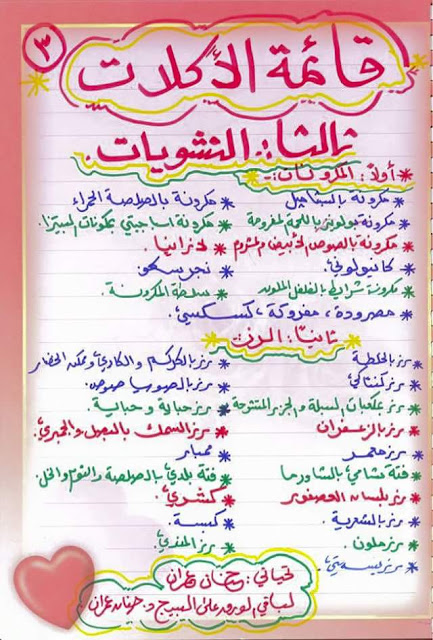 ٣
قائمة الأكلات
ثالثا: النشويات.
* أولاً: المكرونات:-
* مكرونة بالبشاميل * مكرونة بالصلصة الحمراء
* مكرونة بولونيز باللحمة المفرومة * مكرونة اسباجيتي بمكونات البيتزا.
* مكرونة بالصوص الأبيض والمشروم * لازانيا.
* كانيولوني * نجرسكو
* مكرونة شرائط بالفلفل الملون * سلطة المكرونة.
* مفروكة، كسكسي.
* ثانيًا: الرز *
* رز بالخلطة * رز بالكركم والكاري ومكعبات الخضار
* رز كنتاكي * رز بالصويا صوص.
* رز بمكعبات البسلة والجزر المتنوعة * رز حباية وحباية.
* رز بالزعفران * رز السمك بالبصل والجمبري.
* رز محمر * ممبار
* فتة شامي بالشاورما * فتة بلدي بالصلصة والثوم والخل.
* رز بلسان العصفور * كشري.
* رز بالشعرية. * كبسة.
* رز ملون * رز المندي.
* رز بسمتي.
تحياتي: حنان عمران